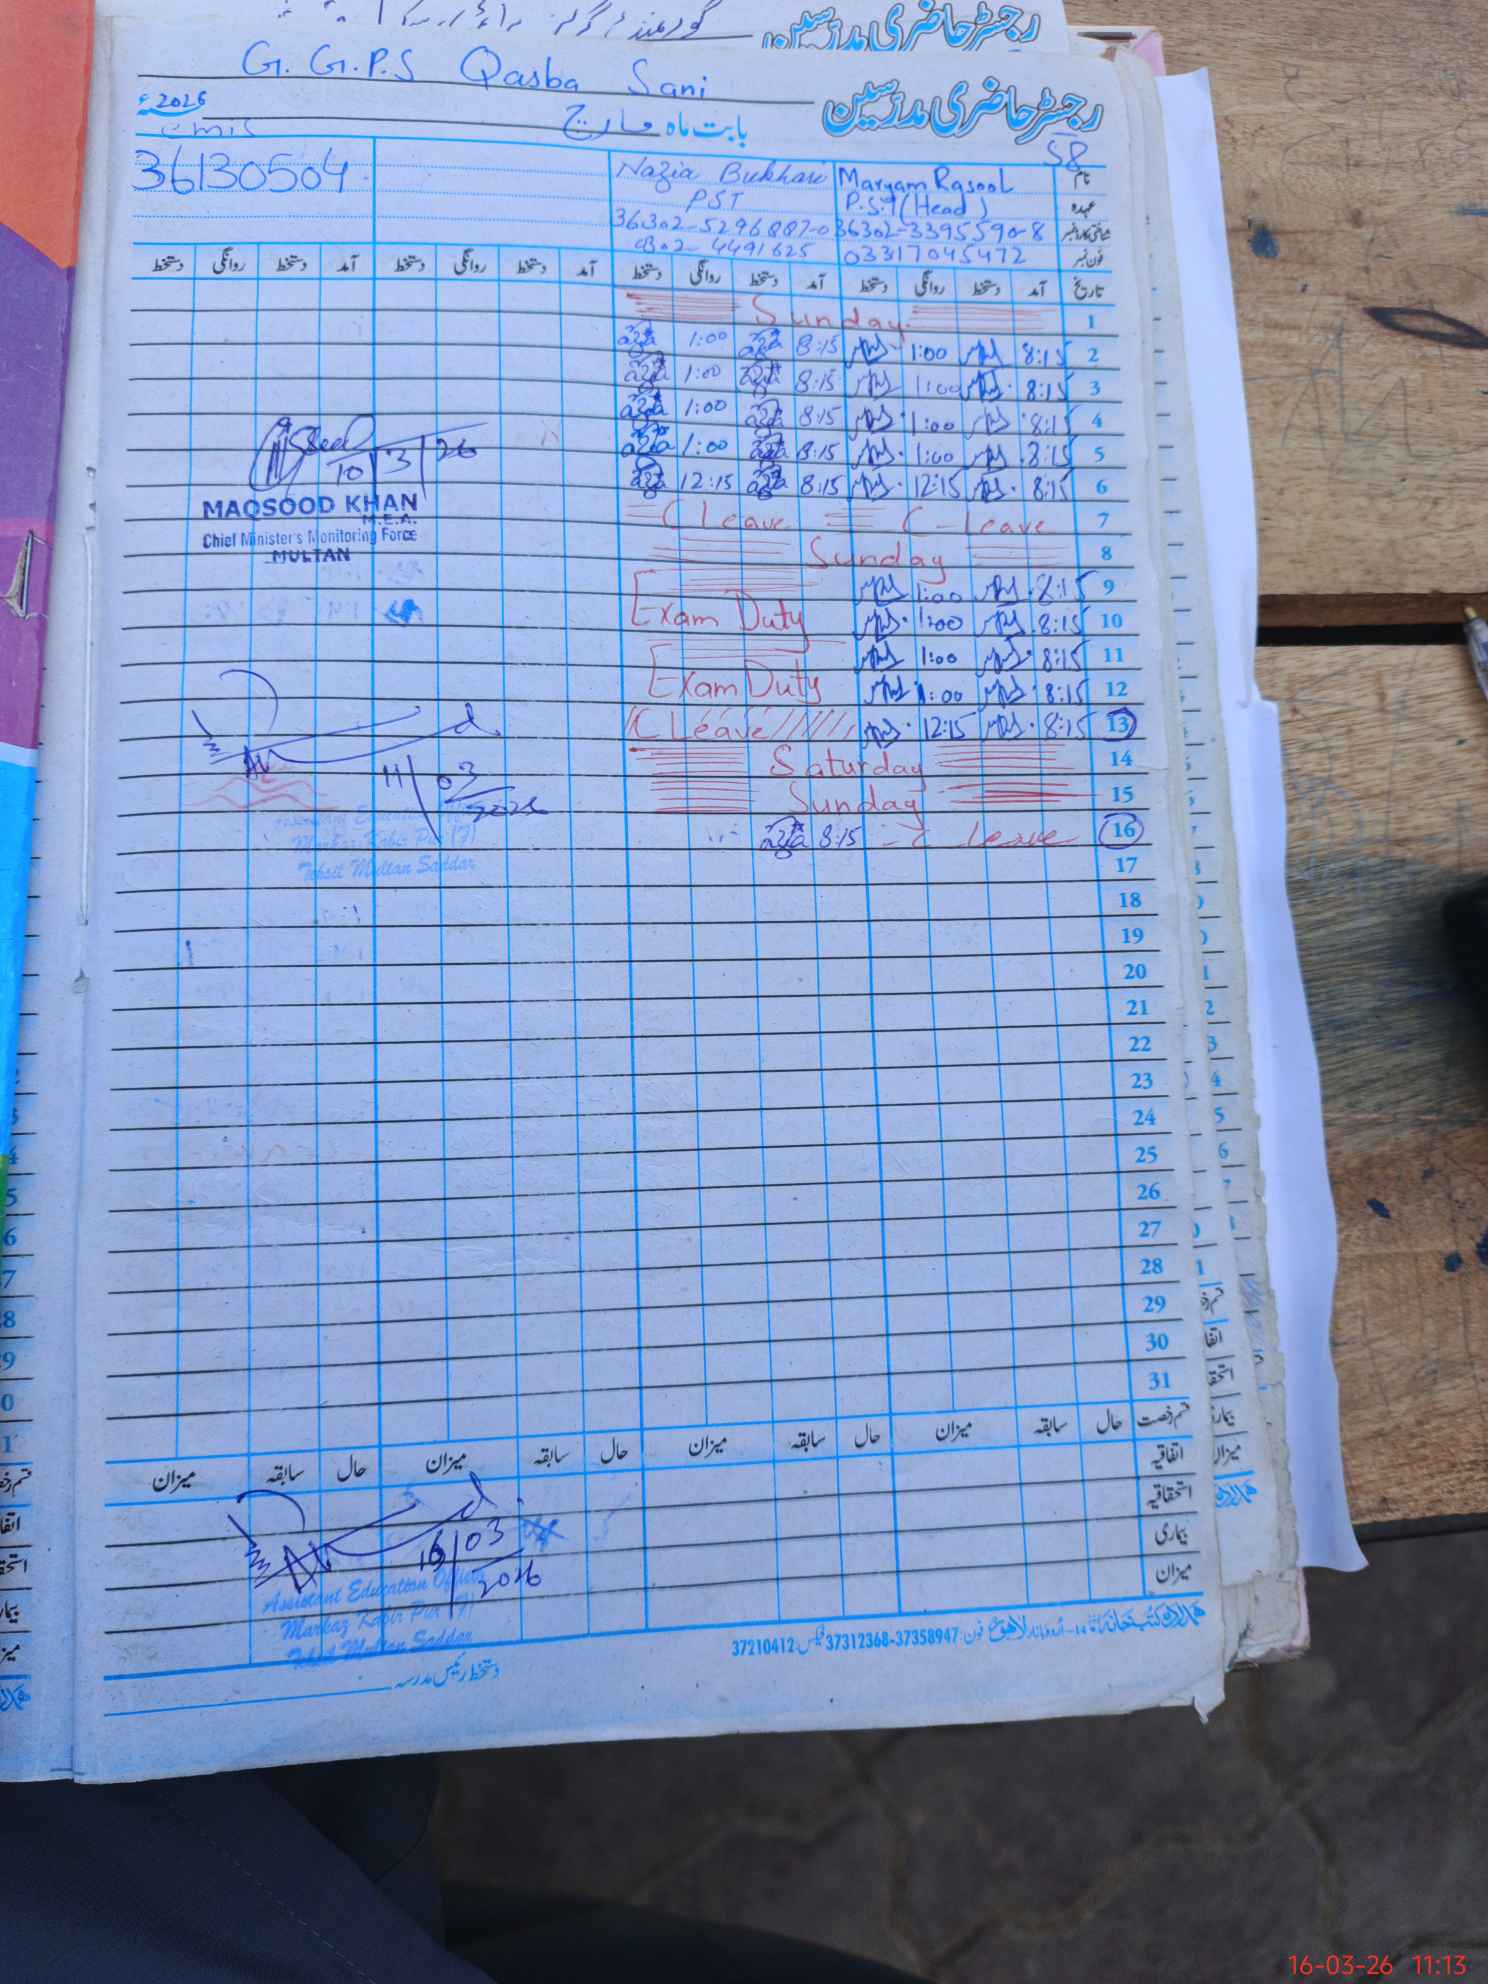 رجسٹر حاضری مدرسین
G. G.P.S Qasba Sani
رجسٹر حاضری مدرسین
2026ء
بابت ماہ مارچ
emis
58
36130504
Nazia Bukhari Maryam Rasool نام
PST P.S.T (Head) عہدہ
36302-5296887-0 36302-3395590-8 شناختی کارڈ نمبر
0302-4491625 03317045472 فون نمبر
دستخط روانگی دستخط آمد دستخط روانگی دستخط آمد دستخط روانگی دستخط آمد دستخط روانگی دستخط آمد تاریخ
Sunday 1
1:00 8:15 1:00 8:15 2
1:00 8:15 1:00 8:15 3
1:00 8:15 1:00 8:15 4
1:00 8:15 1:00 8:15 5
12:15 8:15 12:15 8:15 6
C Leave C-leave 7
Sunday 8
1:00 8:15 9
Exam Duty 1:00 8:15 10
1:00 8:15 11
Exam Duty 1:00 8:15 12
C Leave 12:15 8:15 13
Saturday 14
Sunday 15
8:15 C leave 16
17
18
19
20
21
22
23
24
25
26
27
28
29
30
31
10/3/26
MAQSOOD KHAN
M.E.A.
Chief Minister's Monitoring Force
MULTAN
11/03/2026
Assistant Education Officer
Markaz Kabir Pur (F)
Tehsil Multan Saddar
میزان سابقہ حال میزان سابقہ حال میزان سابقہ حال میزان سابقہ حال قسم رخصت
اتفاقیہ
استحقاقیہ
بیماری
میزان
16/03/2026
Assistant Education Officer
Markaz Kabir Pur (F)
Tehsil Multan Saddar
دستخط رئیس مدرسہ
ہمدرد کتب خانہ اردو بازار لاہور فون: 37312368-37358947 فیکس: 37210412
16-03-26 11:13